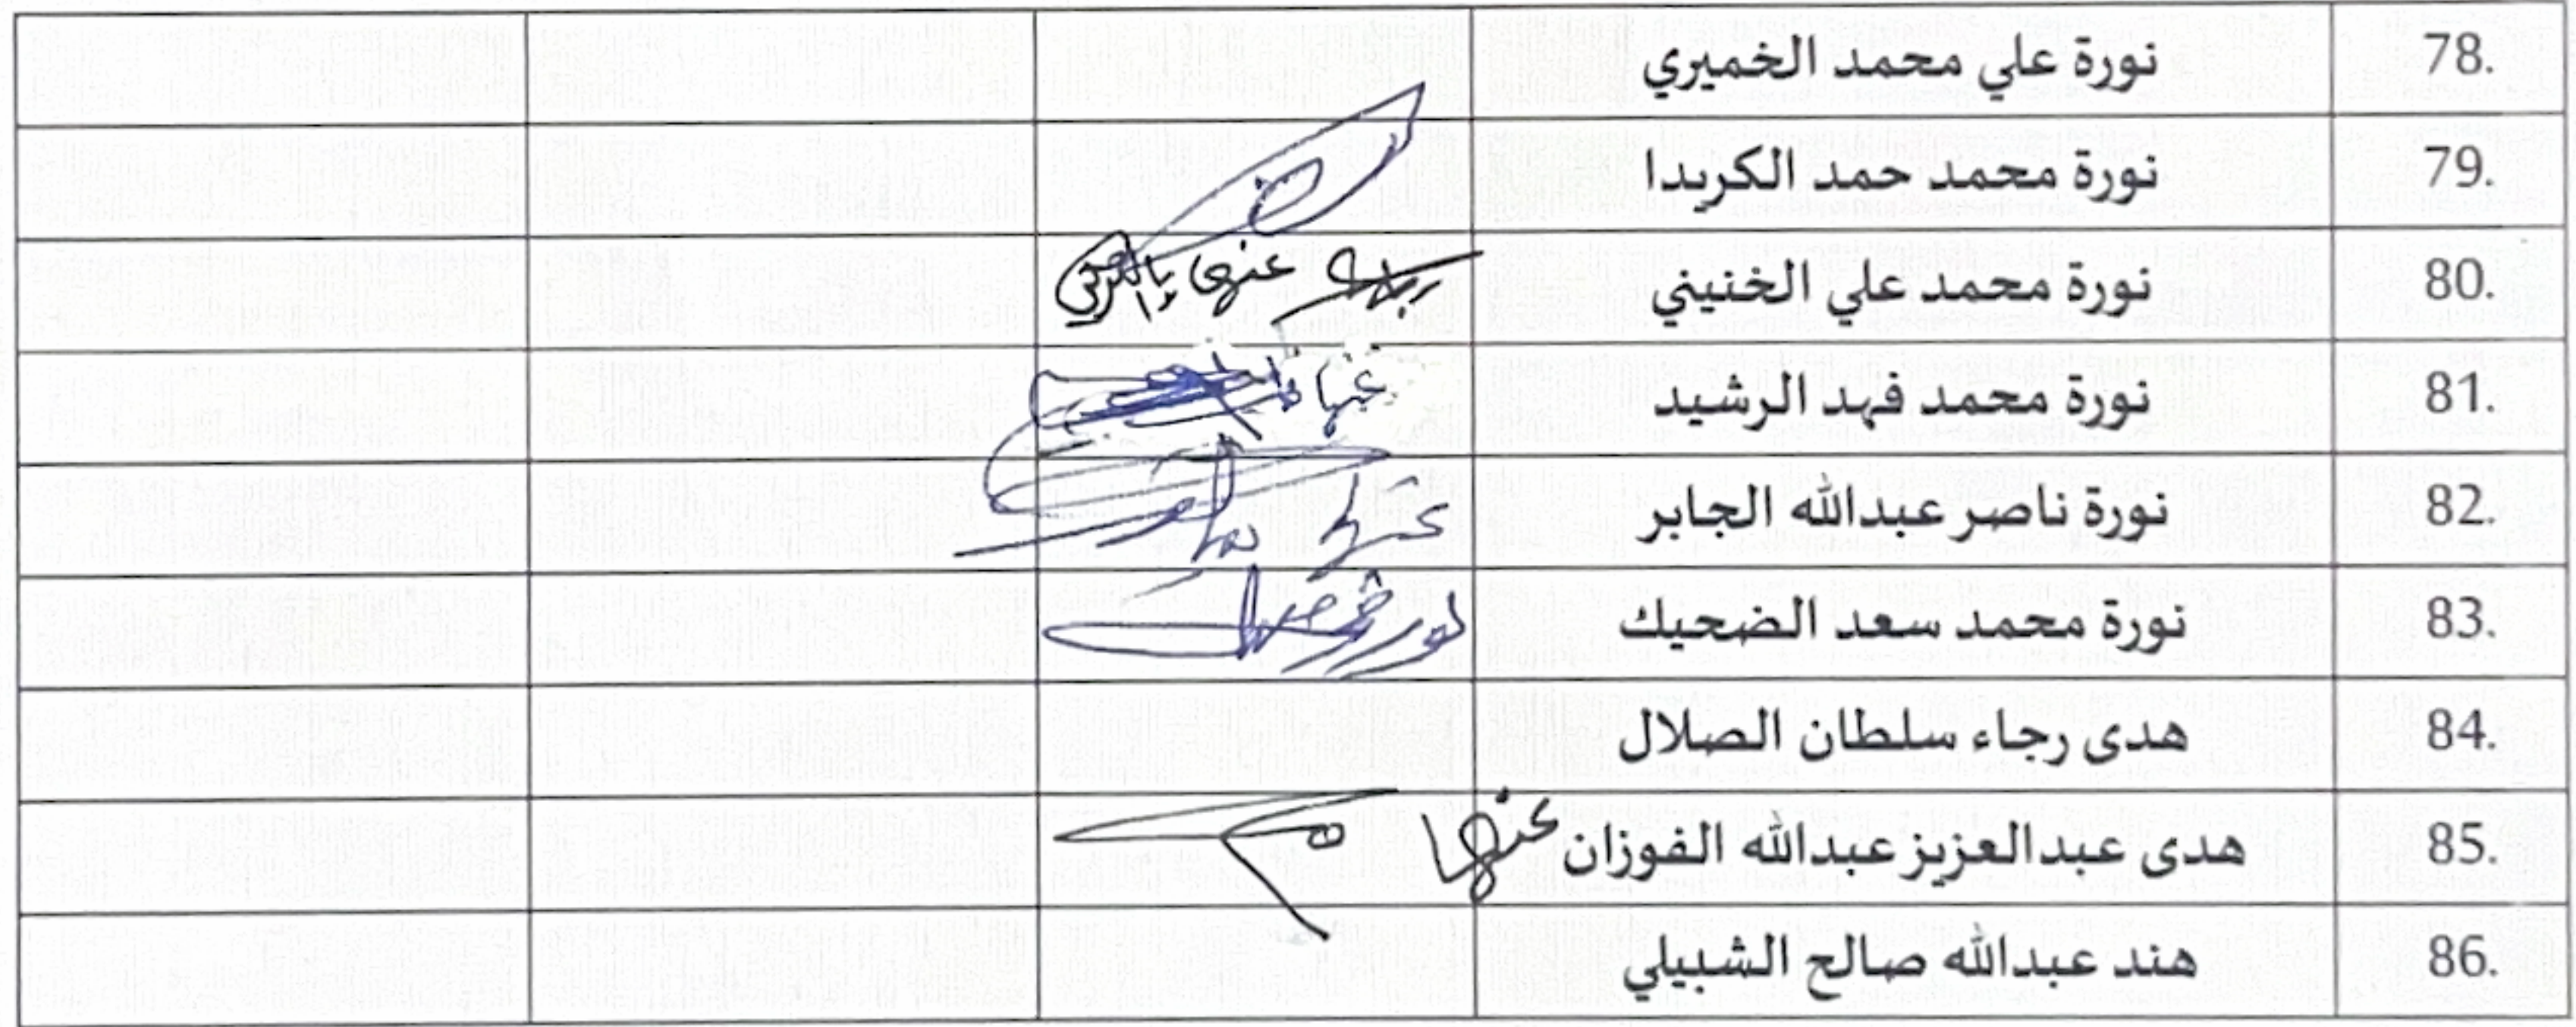 78. نورة علي محمد الخميري
79. نورة محمد حمد الكريدا
80. نورة محمد علي الخنيني عنها
81. نورة محمد فهد الرشيد عنها
82. نورة ناصر عبدالله الجابر
83. نورة محمد سعد الضحيك
84. هدى رجاء سلطان الصلال
85. هدى عبدالعزيز عبدالله الفوزان عنها
86. هند عبدالله صالح الشبيلي